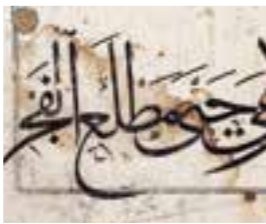 هي حتى مطلع الفجر